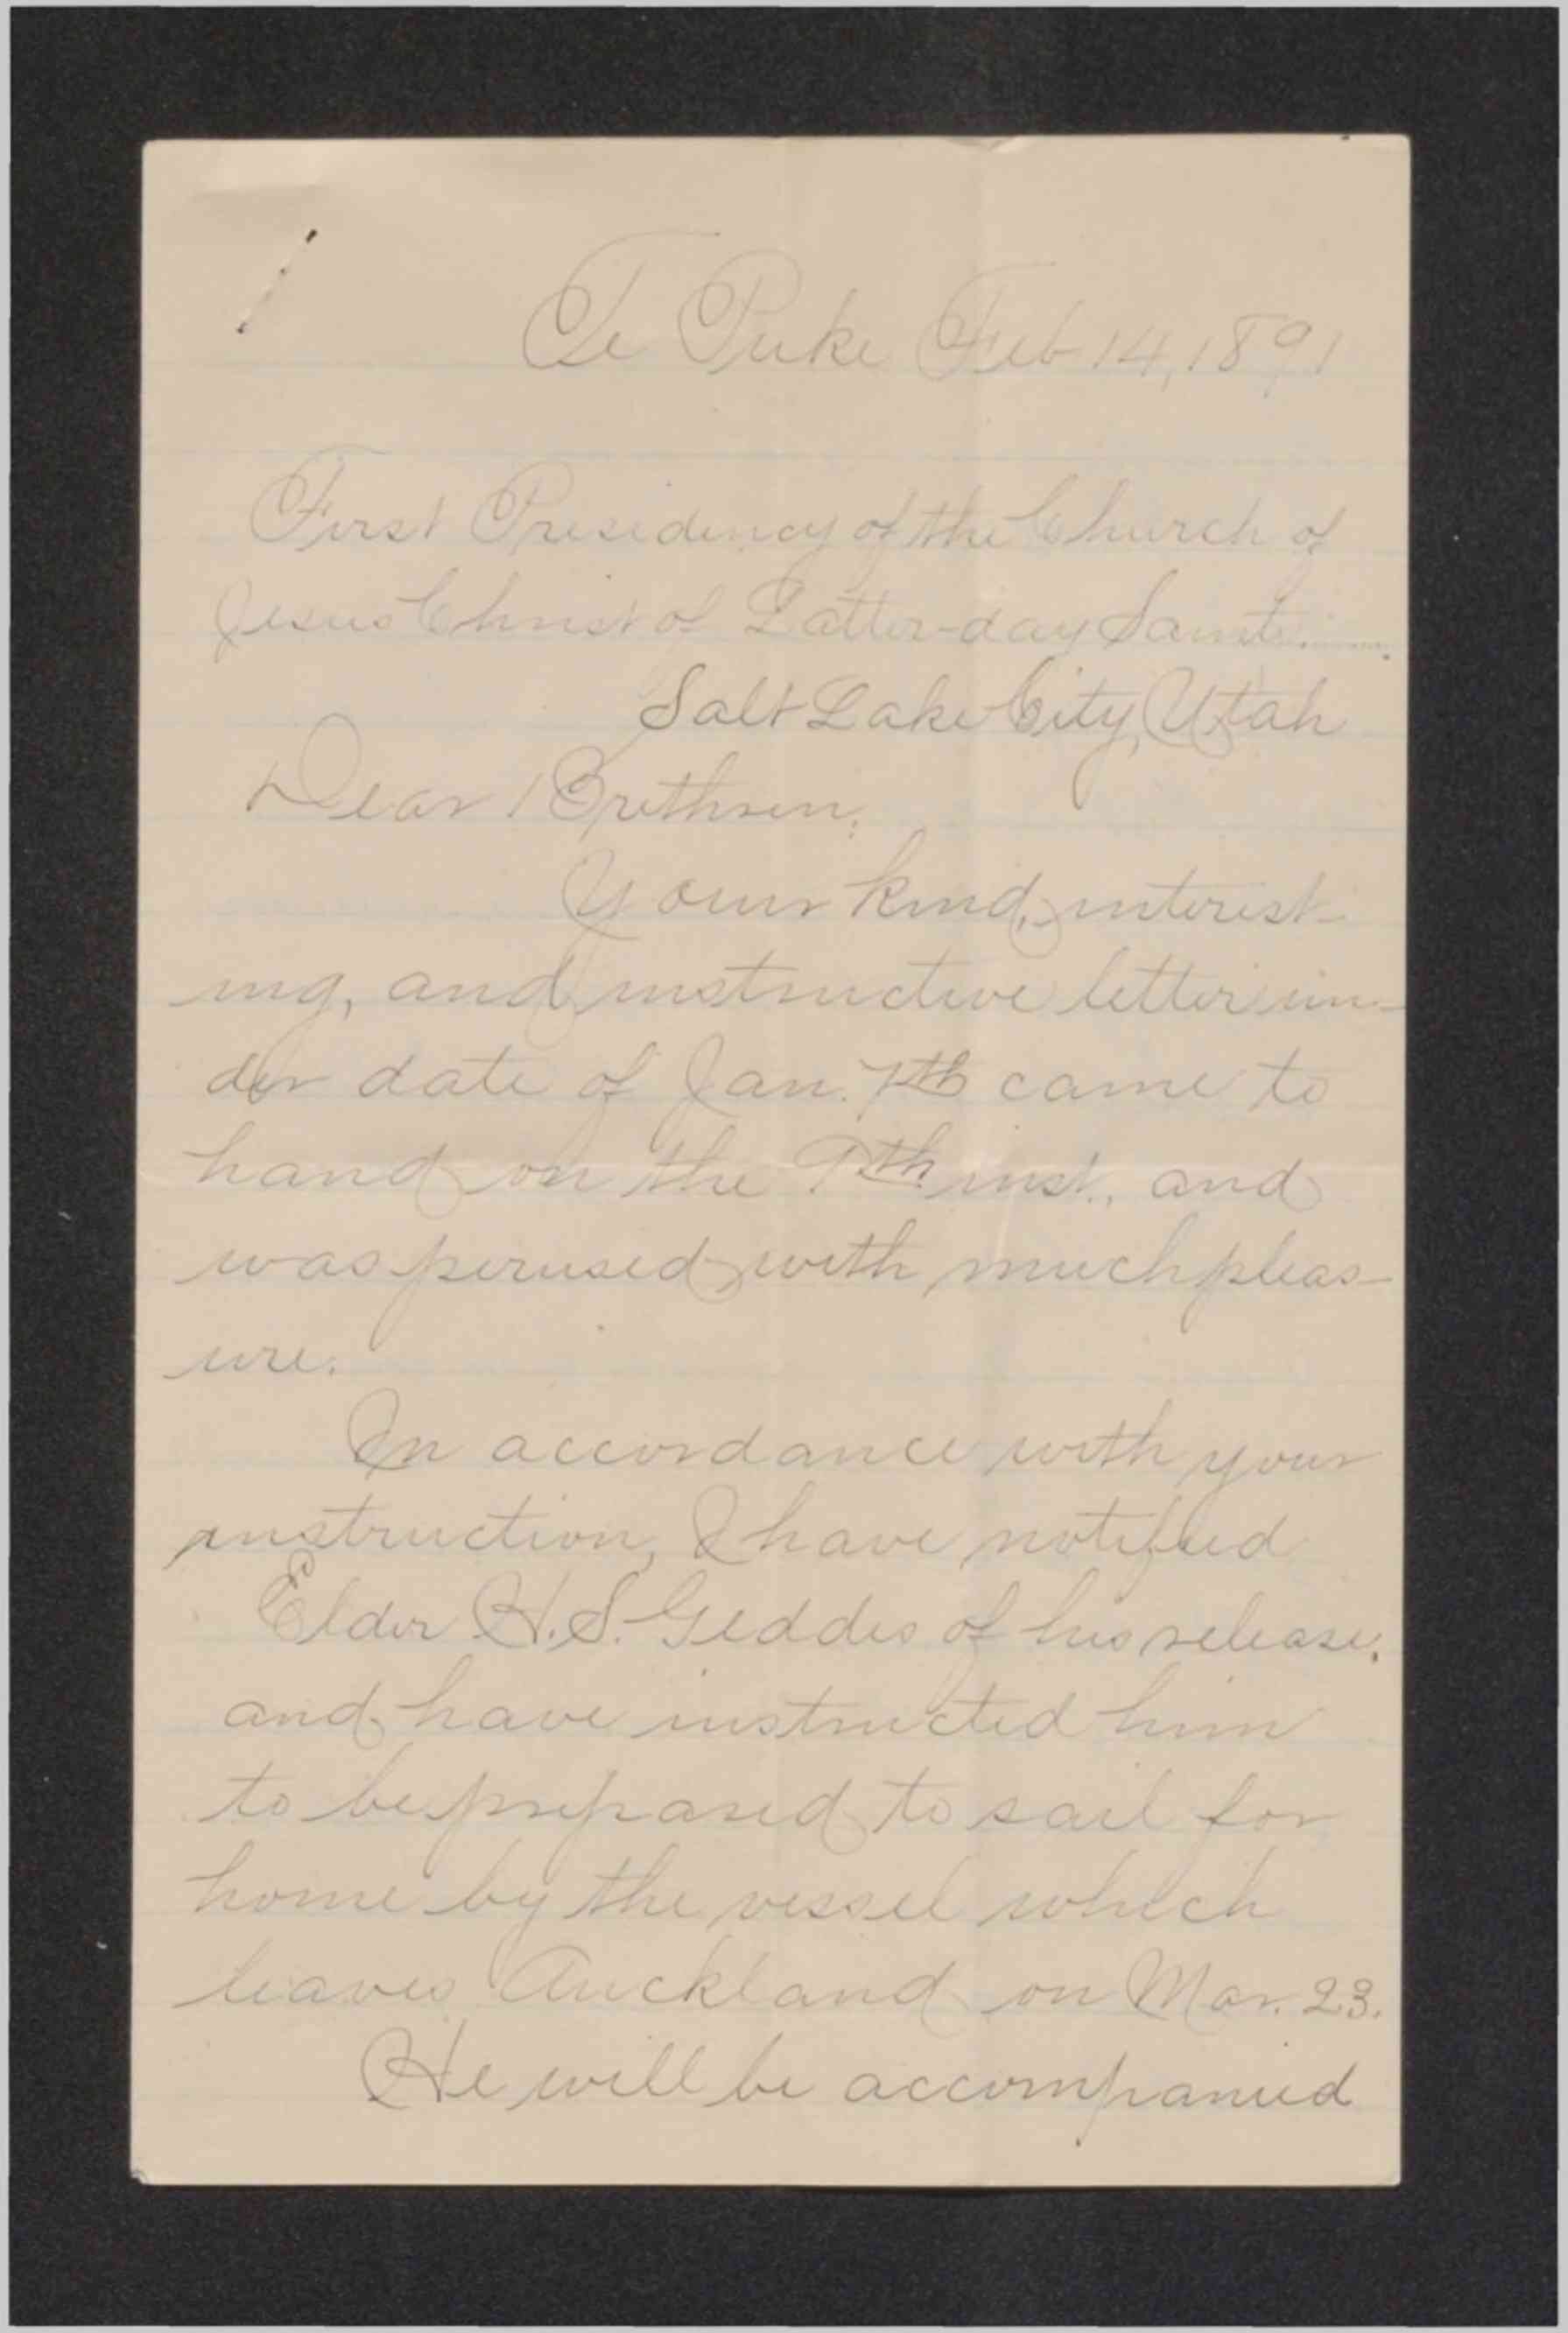 Te Puke Feb 14, 1891
First Presidency of the Church of
Jesus Christ of Latter-day Saints.
Salt Lake City, Utah
Dear Brethren;
Your kind, interest-
ing, and instructive letter un-
der date of Jan. 7th came to
hand on the 9th inst., and
was perused with much pleas-
ure.
In accordance with your
instruction, I have notified
Elder H.S. Geddes of his release,
and have instructed him
to be prepared to sail for
home by the vessel which
leaves Auckland on Mar. 23.
He will be accompanied